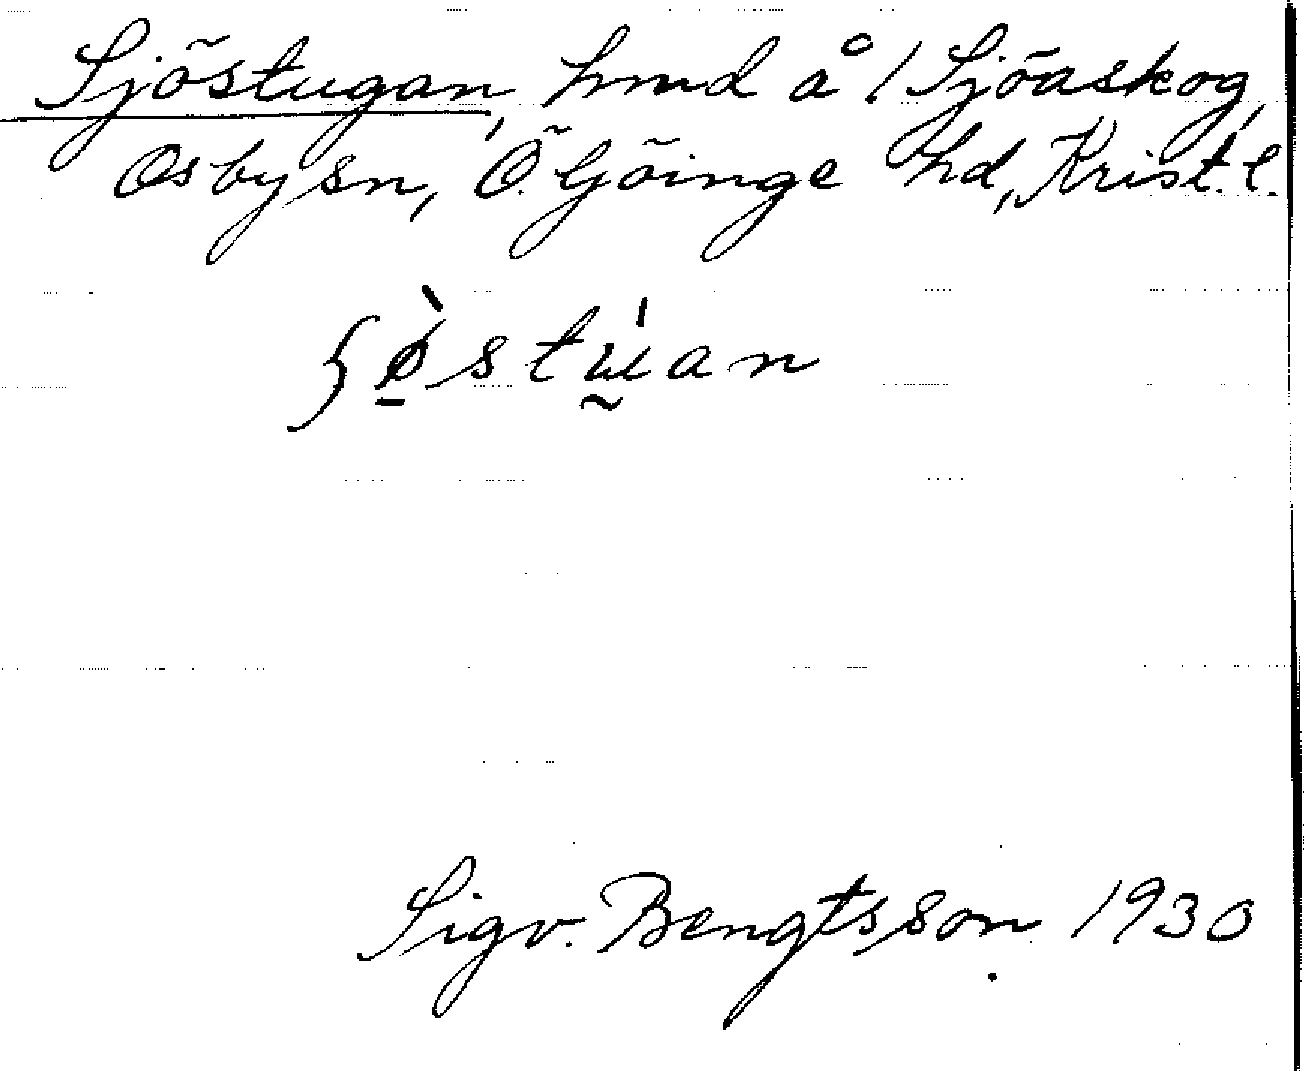 Sjöstugan, hmd å 1 Sjöaskog,
Osby sn, Ö. Göinge hd, Krist. l.
ʃø̠̀stɯ̰́an
Sigv. Bengtsson 1930